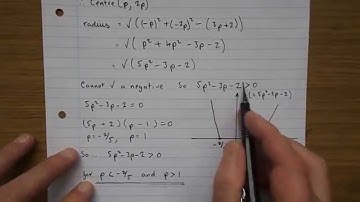 ∴ Centre (p, 2p)
radius = √((-p)² + (-2p)² - (3p+2))
= √(p² + 4p² - 3p - 2)
= √(5p² - 3p - 2)
Cannot √ a negative So 5p² - 3p - 2 > 0
5p² - 3p - 2 = 0
(= 5p² - 3p - 2)
(5p + 2)(p - 1) = 0
p = -2/5, p = 1
-2/5
So... 5p² - 3p - 2 > 0
for p < -2/5 and p > 1